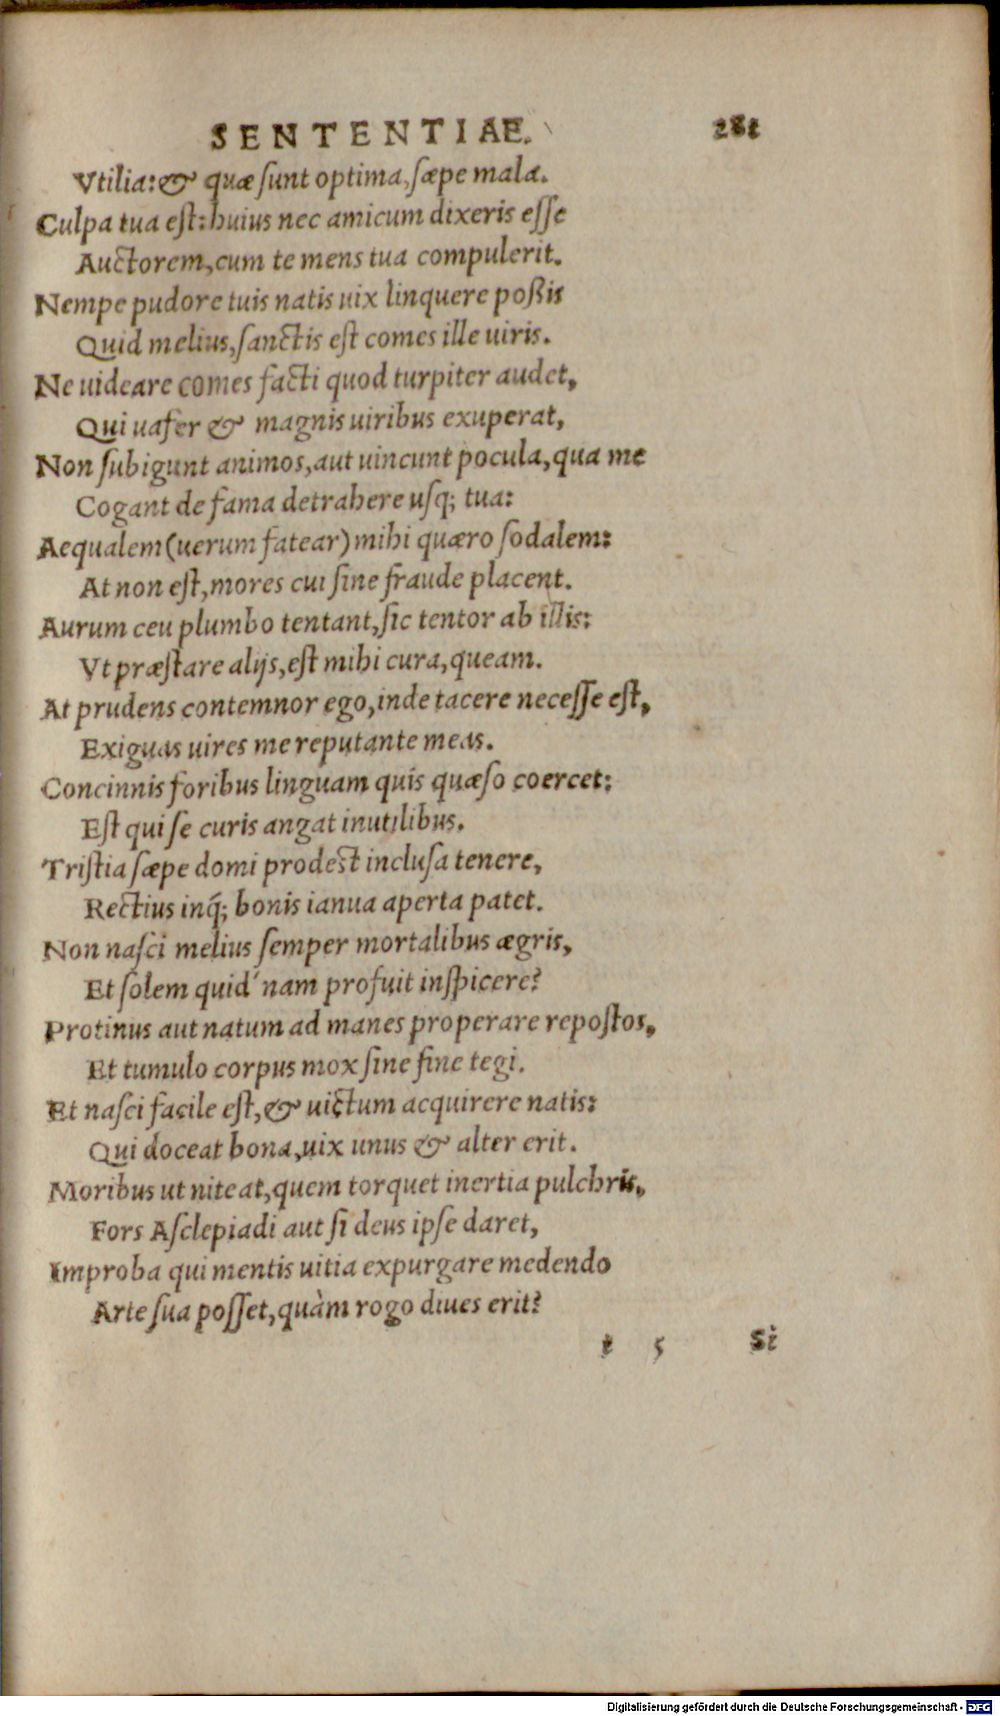 SENTENTIAE. 281
Vtilia: & quæ sunt optima, sæpe mala.
Culpa tua est: huius nec amicum dixeris esse
Auctorem, cum te mens tua compulerit.
Nempe pudore tuis natis uix linquere poßis
Quid melius, sanctis est comes ille uiris.
Ne uideare comes facti quod turpiter audet,
Qui uafer & magnis uiribus exuperat,
Non subigunt animos, aut uincunt pocula, qua me
Cogant de fama detrahere usq; tua:
Aequalem (uerum fatear) mihi quæro sodalem:
At non est, mores cui sine fraude placent.
Aurum ceu plumbo tentant, sic tentor ab illis:
Vt præstare alijs, est mihi cura, queam.
At prudens contemnor ego, inde tacere necesse est,
Exiguas uires me reputante meas.
Concinnis foribus linguam quis quæso coercet:
Est qui se curis angat inutilibus.
Tristia sæpe domi prodest inclusa tenere,
Rectius inq́; bonis ianua aperta patet.
Non nasci melius semper mortalibus ægris,
Et solem quid´nam profuit inspicere?
Protinus aut natum ad manes properare repostos,
Et tumulo corpus mox sine fine tegi.
Et nasci facile est, & uictum acquirere natis:
Qui doceat bona, uix unus & alter erit.
Moribus ut niteat, quem torquet inertia pulchris,
Fors Asclepiadi aut si deus ipse daret,
Improba qui mentis uitia expurgare medendo
Arte sua posset, quàm rogo diues erit?
t 5 Si
Digitalisierung gefördert durch die Deutsche Forschungsgemeinschaft - DFG